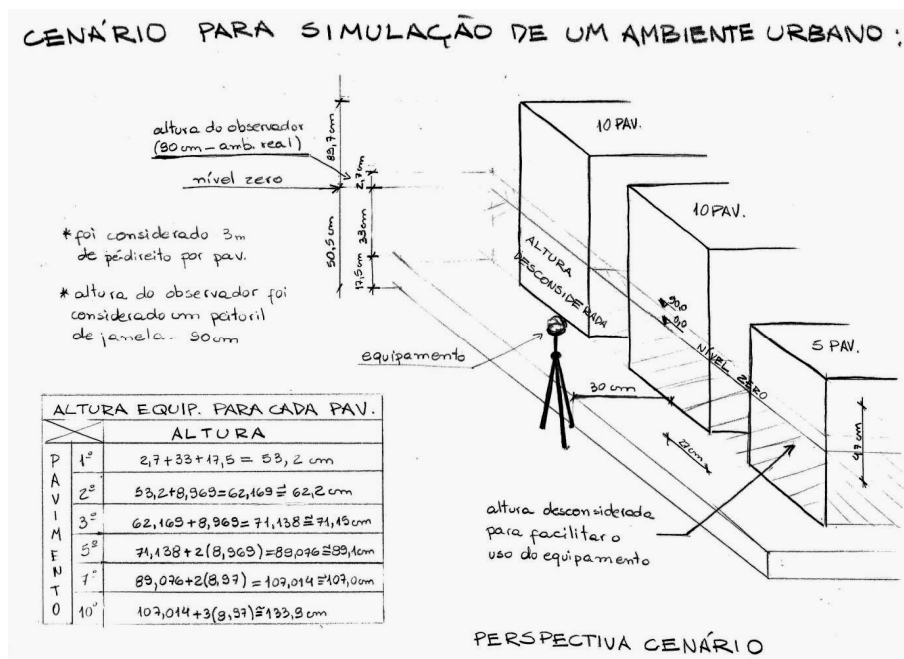 CENÁRIO PARA SIMULAÇÃO DE UM AMBIENTE URBANO:
altura do observador
(90 cm - amb. real)
nível zero
89,7cm
2,7cm
50,5cm
33cm
17,5cm
* foi considerado 3m
de pé-direito por pav.
* altura do observador foi
considerado um peitoril
de janela. 90cm
10 PAV.
10 PAV.
5 PAV.
ALTURA
DESCONSIDERADA
NÍVEL ZERO
equipamento
30 cm
altura desconsiderada
para facilitar o
uso do equipamento
ALTURA EQUIP. PARA CADA PAV.
ALTURA
PAVIMENTO
1º 2,7+33+17,5 = 53,2 cm
2º 53,2+8,969=62,169≅62,2cm
3º 62,169+8,969=71,138≅71,15cm
5º 71,138+2(8,969)=89,076≅89,1cm
7º 89,076+2(8,97)=107,014≅107,0cm
10º 107,014+3(8,97)≅133,9cm
PERSPECTIVA CENÁRIO